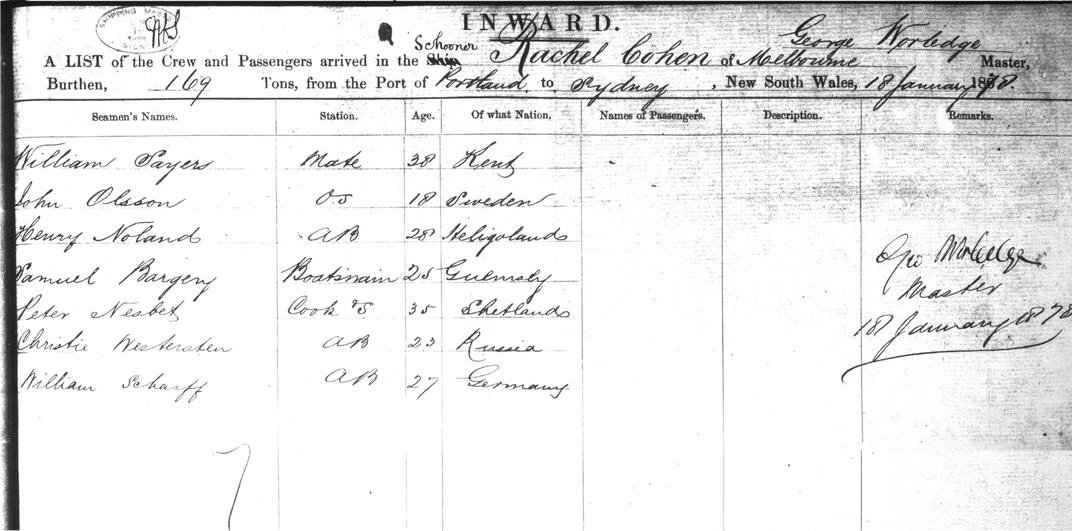 SHIPPING MAS
INWARD.
George Worledge
Schooner
A LIST of the Crew and Passengers arrived in the Ship Rachel Cohen of Melbourne Master,
Burthen, 169 Tons, from the Port of Portland to Sydney, New South Wales, 18 January 1878.
Seamen's Names. Station. Age. Of what Nation, Names of Passengers. Description. Remarks.
William Sayers Mate 38 Kent
John Olsson OS 18 Sweden
Henry Noland AB 28 Heligolands
Samuel Bargery Boatswain 25 Guernsby
Peter Nesbet Cook &S 35 Shetlands
Christie Westersten AB 23 Russia
William Scharff AB 27 Germany
Geo Worledge
Master
18 January 1878